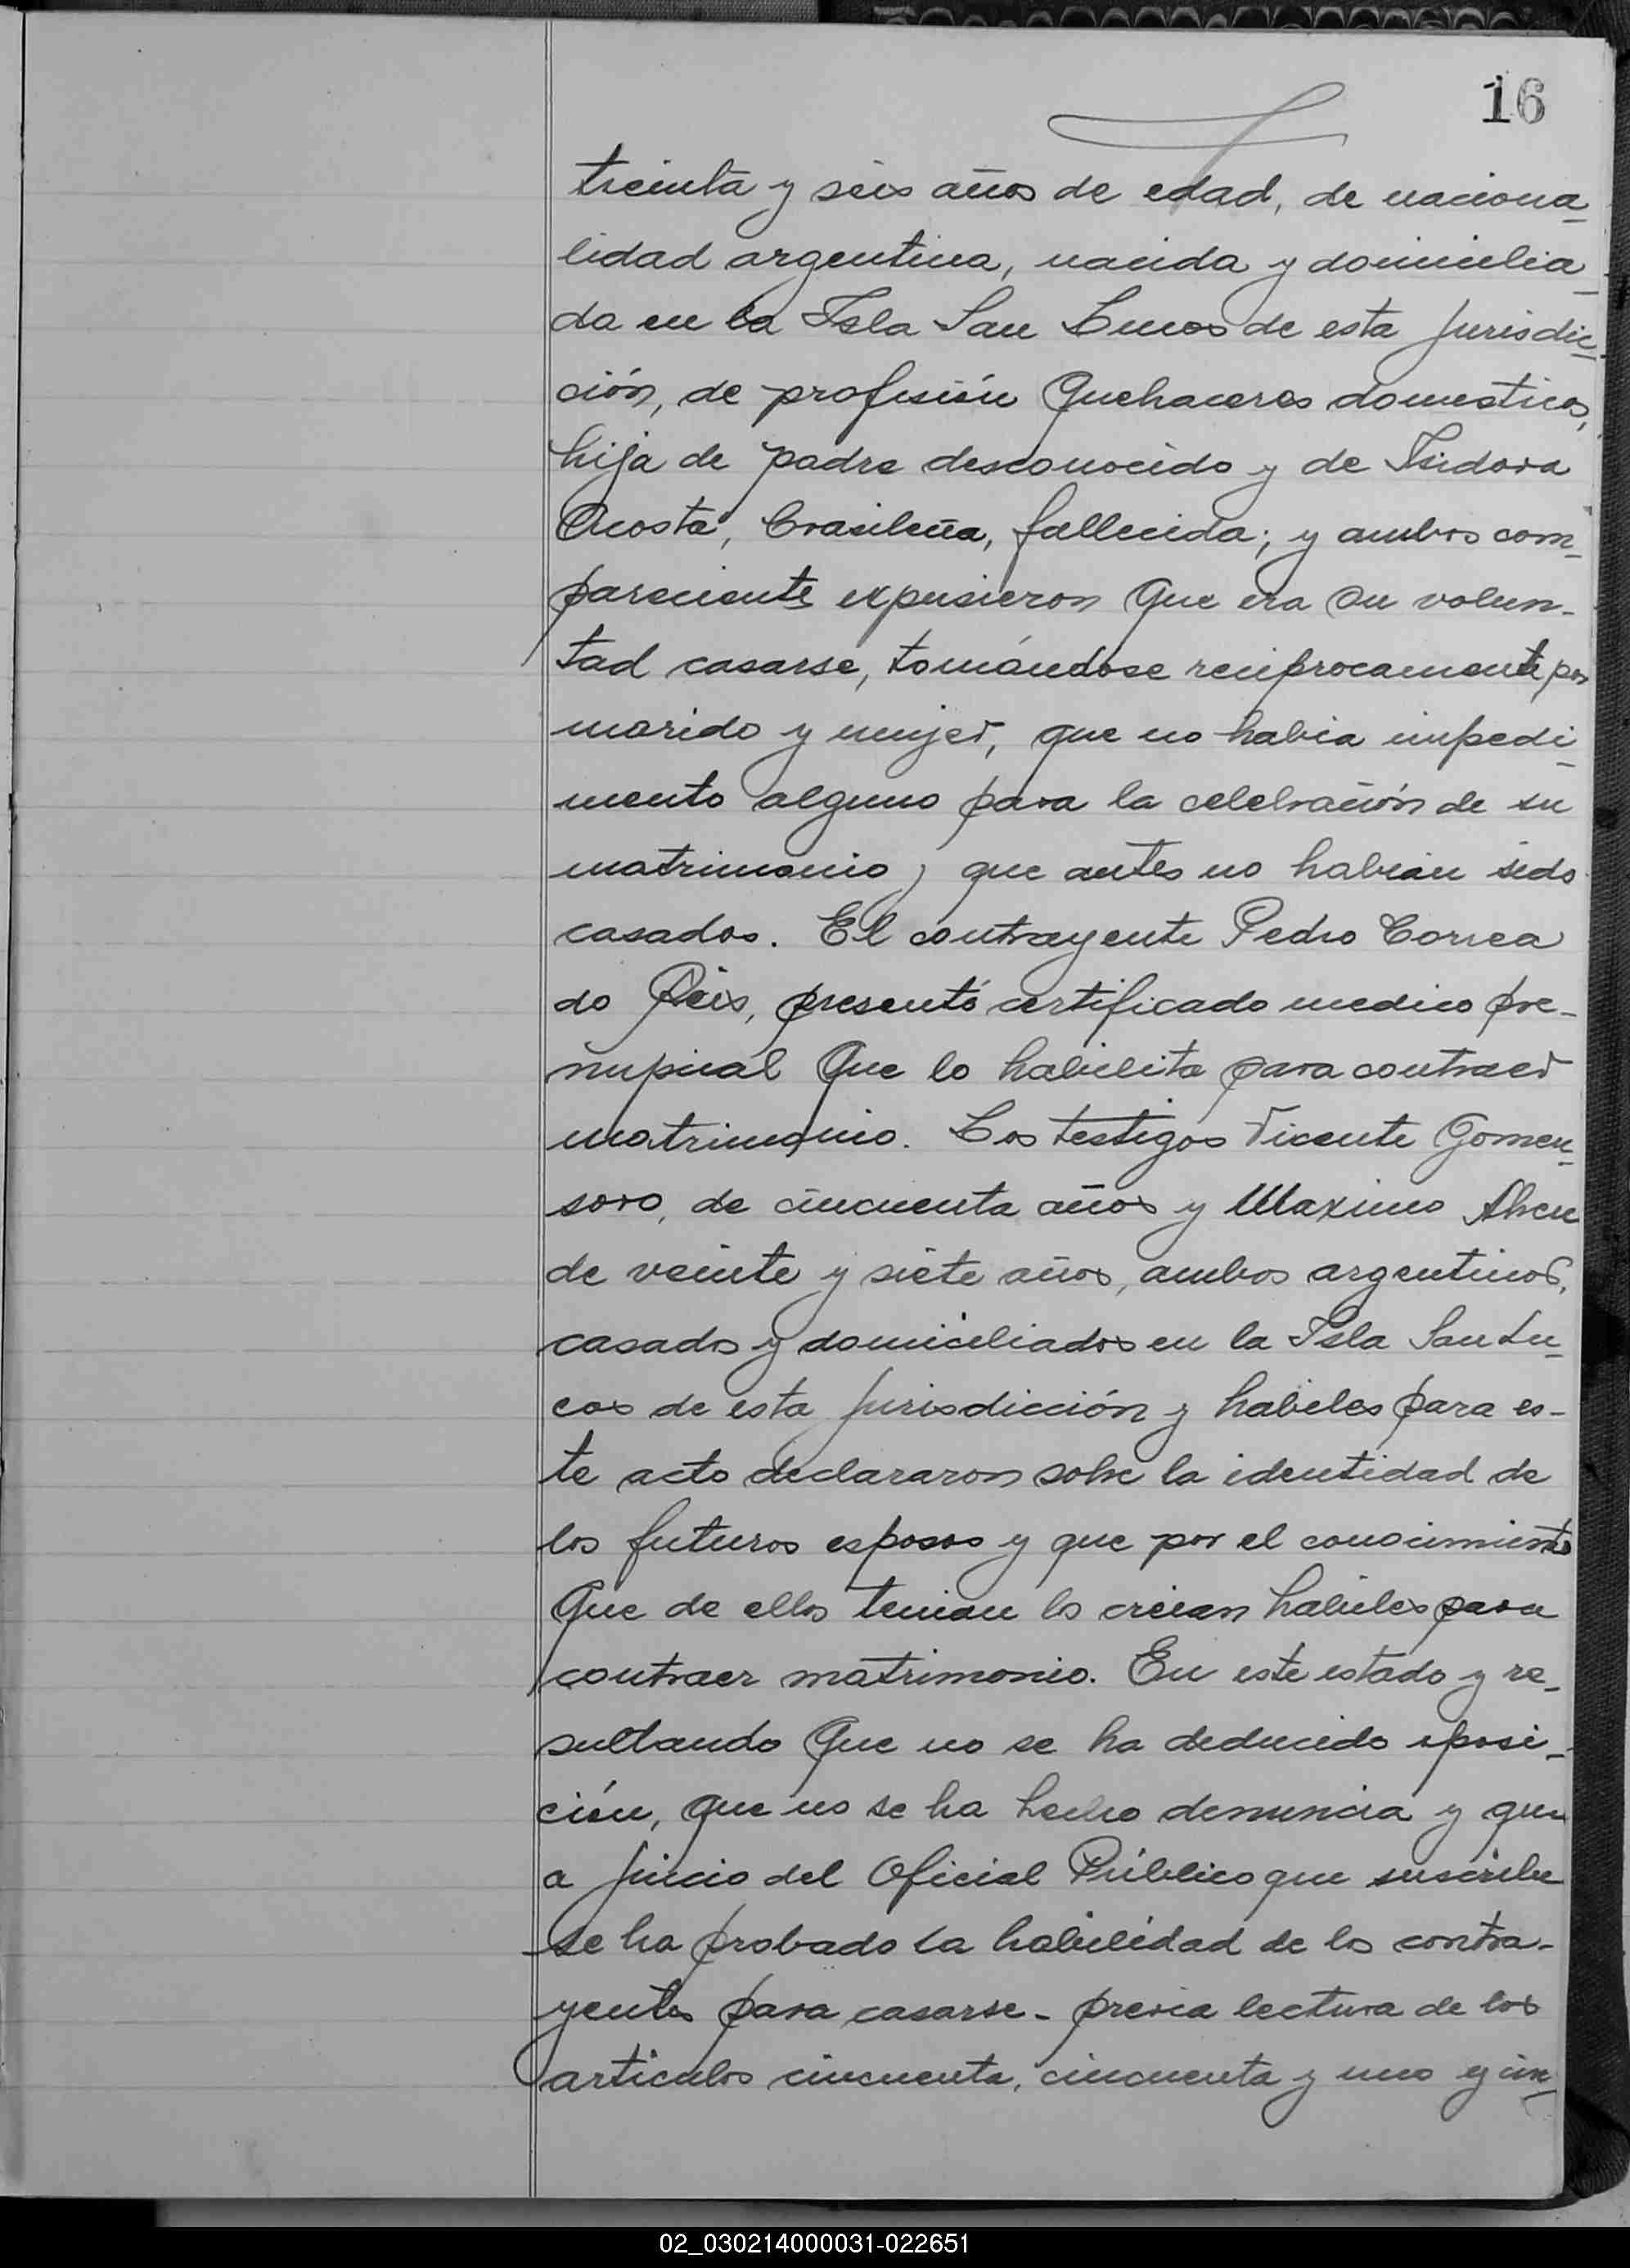 16
treinta y seis años de edad, de naciona-
lidad argentina, nacida y domicilia-
da en la Isla San Lucas de esta jurisdic-
ción, de profesión Quehaceres domesticos,
hija de padre desconocido y de Isidora
Acosta, brasileña, fallecida; y ambos com-
pareciente expusieron Que era su volun-
tad casarse, tomándose reciprocamente por
marido y mujer, que no habia impedi-
mento alguno para la celebración de su
matrimonio y que antes no habian sido
casados. El contrayente Pedro Correa
do Reis, presentó certificado medico pre-
nupcial Que lo habilita para contraer
matrimonio. Los testigos Vicente Gomen-
soro, de cincuenta años y Maximo
de veinte y siete años, ambos argentinos,
casados y domiciliados en la Isla San Lu-
cas de esta jurisdicción y habiles para es-
te acto declararon sobre la identidad de
los futuros esposos y que por el conocimiento
Que de ellos tenian los creian habiles para
contraer matrimonio. En este estado y re-
sultando Que no se ha deducido oposi-
ción, que no se ha hecho denuncia y que
a juicio del Oficial Público que suscribe
se ha probado la habilidad de los contra-
yentes para casarse - previa lectura de los
articulos cincuenta, cincuenta y uno y cin-
02_030214000031-022651